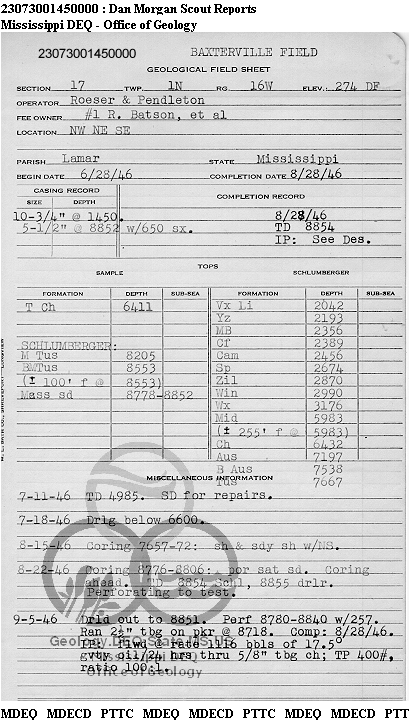 23073001450000 : Dan Morgan Scout Reports
Mississippi DEQ - Office of Geology
23073001450000 BAXTERVILLE FIELD
GEOLOGICAL FIELD SHEET
SECTION 17 TWP. 1N RG. 16W ELEV.: 274 DF
OPERATOR Roeser & Pendleton
FEE OWNER #1 R. Batson, et al
LOCATION NW NE SE
PARISH Lamar STATE Mississippi
BEGIN DATE 6/28/46 COMPLETION DATE 8/28/46
CASING RECORD COMPLETION RECORD
SIZE DEPTH
10-3/4" @ 1450. 8/28/46
5-1/2" @ 8852 w/650 sx. TD 8854
IP: See Des.
TOPS
SAMPLE SCHLUMBERGER
FORMATION DEPTH SUB-SEA FORMATION DEPTH SUB-SEA
T Ch 6411 Vx Li 2042
Yz 2193
MB 2356
SCHLUMBERGER: Cf 2389
M Tus 8205 Cam 2456
BMTus 8553 Sp 2674
(± 100' f @ 8553) Zil 2870
Mass sd 8778-8852 Win 2990
Wx 3176
Mid 5983
(± 255' f @ 5983)
Ch 6432
Aus 7197
B Aus 7538
Tus 7667
MISCELLANEOUS INFORMATION
7-11-46 TD 4985. SD for repairs.
7-18-46 Drlg below 6600.
8-15-46 Coring 7657-72: sh & sdy sh w/NS.
8-22-46 Coring 8776-8806: por sat sd. Coring
ahead. TD 8854 Schl, 8855 drlr.
Perforating to test.
9-5-46 Drld out to 8851. Perf 8780-8840 w/257.
Ran 2½" tbg on pkr @ 8718. Comp: 8/28/46.
IP: flwd @ rate 1116 bbls of 17.5°
gvty oil/24 hrs thru 5/8" tbg ch; TP 400#,
ratio 100:1.
Office of Geology
MDEQ MDECD PTTC MDEQ MDECD PTTC MDEQ MDECD PTT